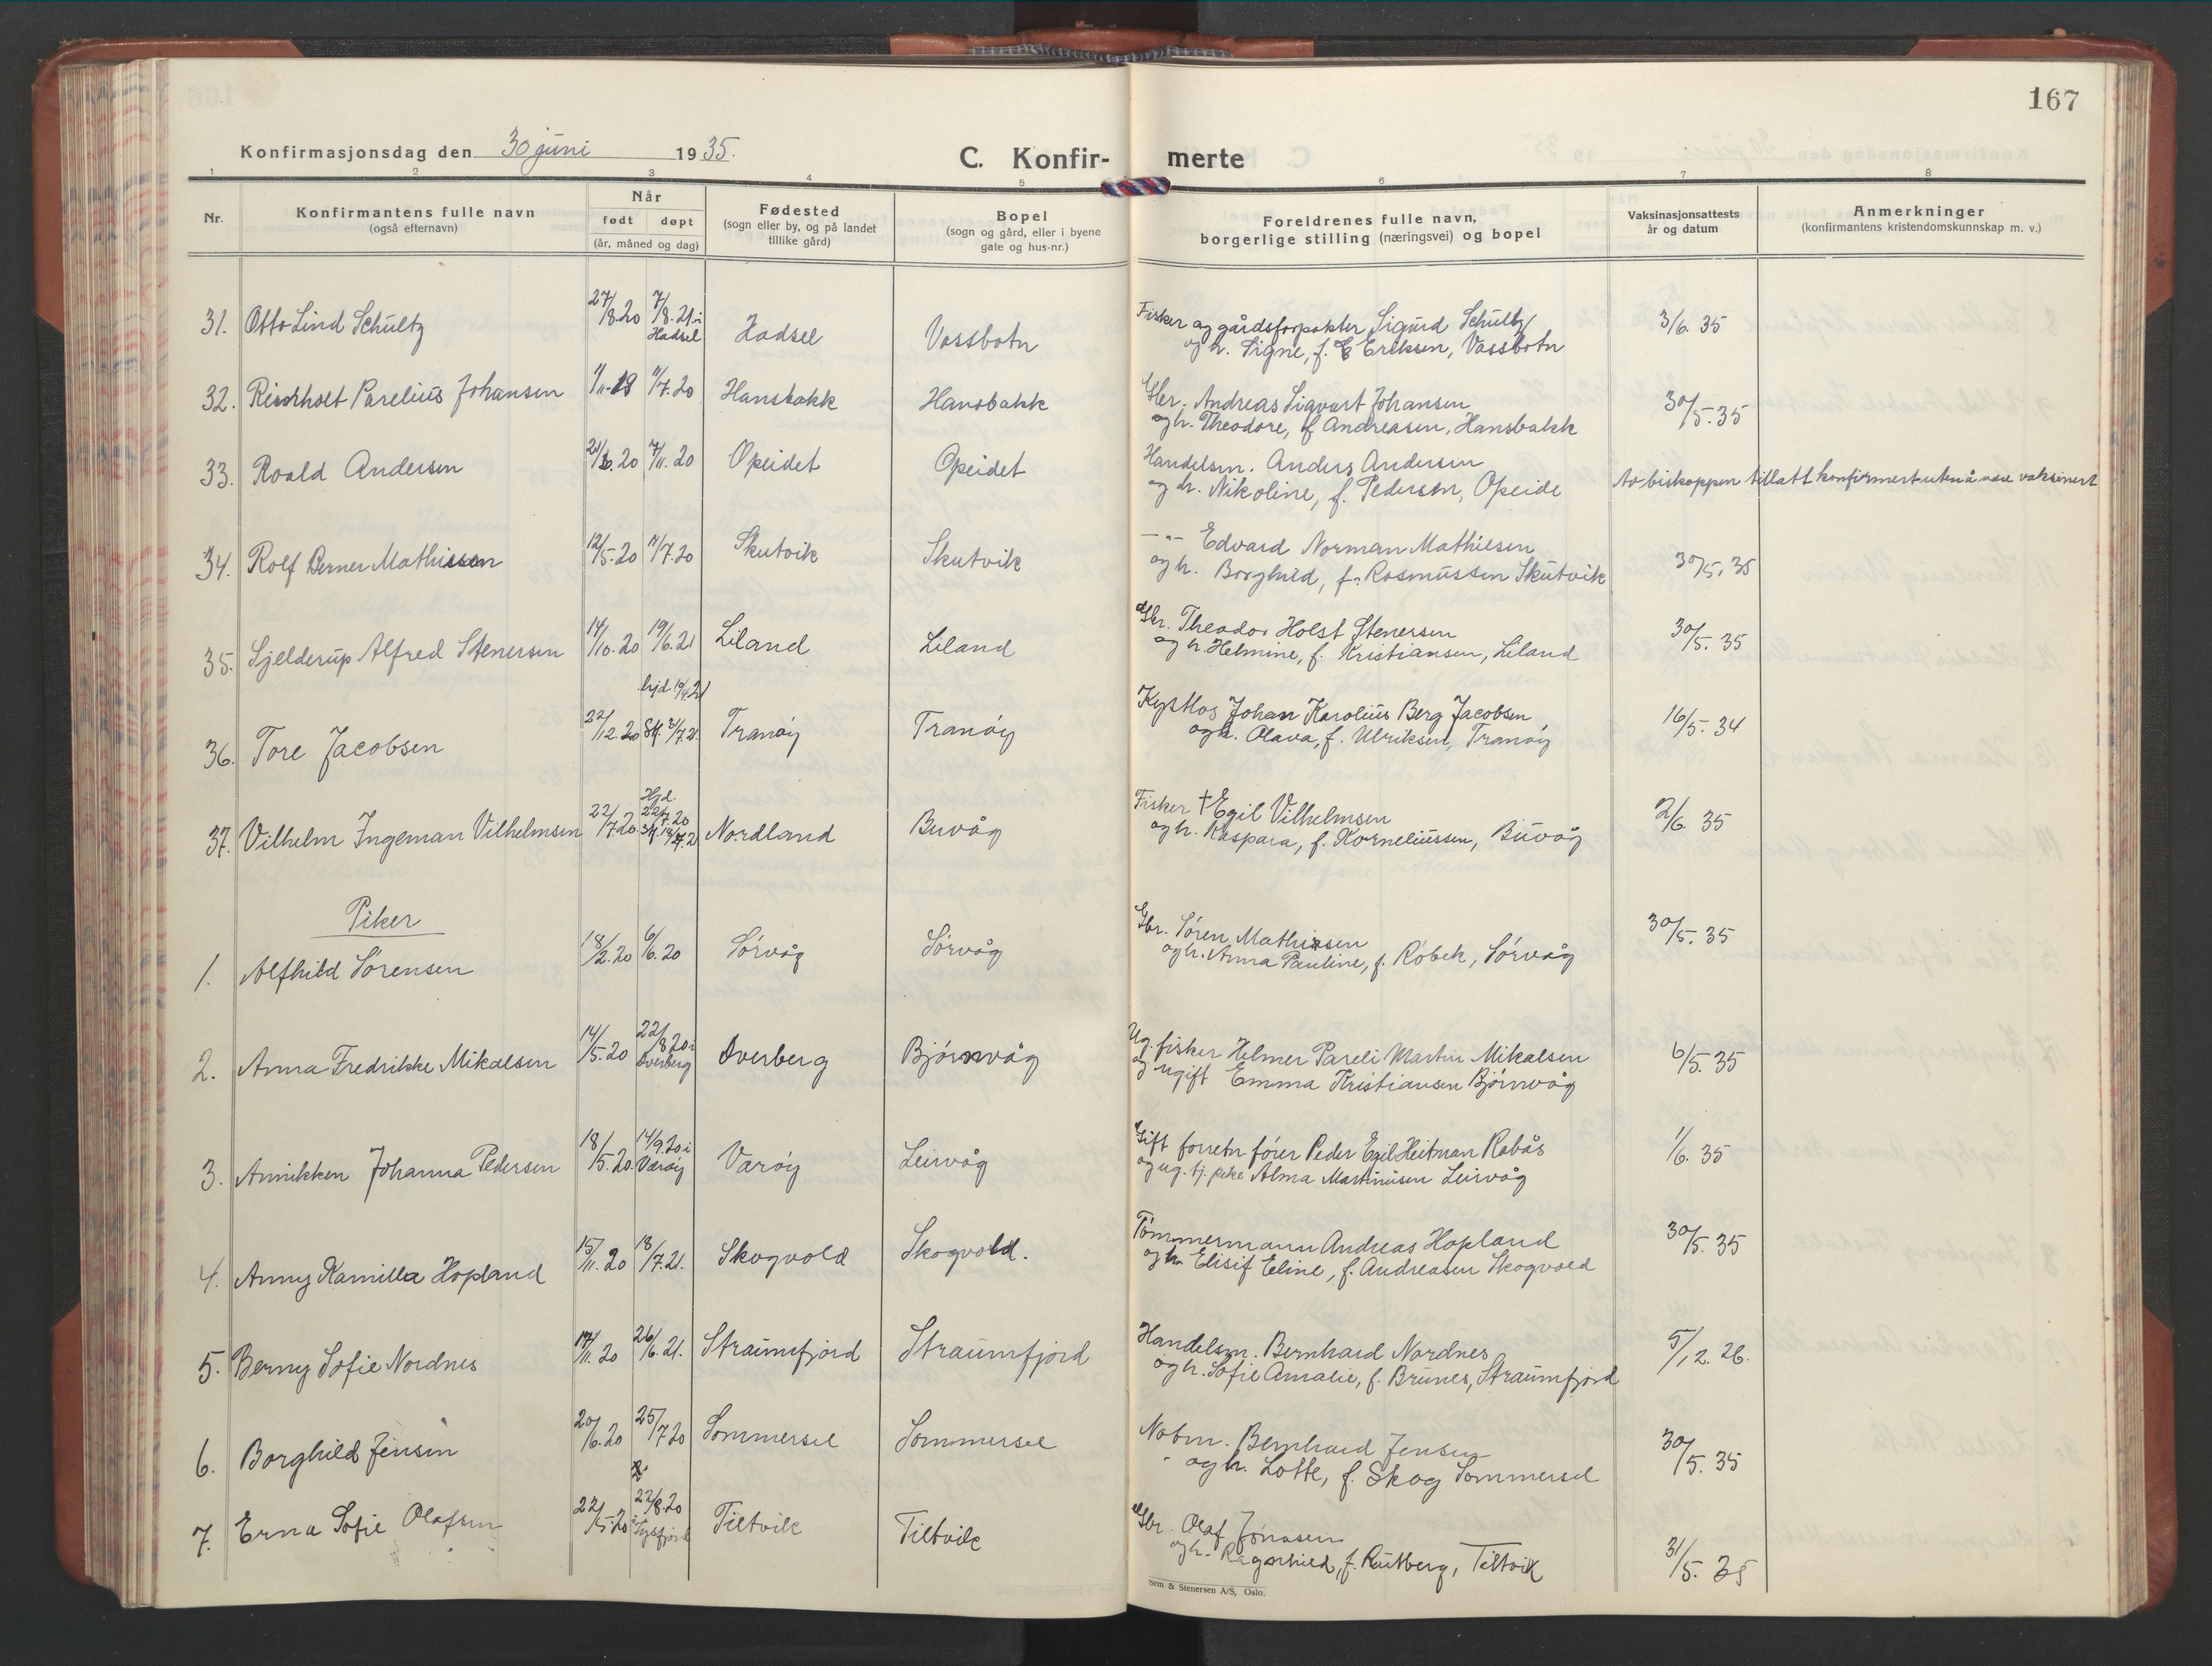 167
Konfirmasjonsdag den 30 juni 1935.
C. Konfir- merte
1 2 3 4 5 6 7 8
Nr.
Konfirmantens fulle navn
(også efternavn)
Når
født døpt
(år, måned og dag)
Fødested
(sogn eller by, og på landet
tillike gård)
Bopel
(sogn og gård, eller i byene
gate og hus-nr.)
Foreldrenes fulle navn,
borgerlige stilling (næringsvei) og bopel
Vaksinasjonsattests
år og datum
Anmerkninger
(konfirmantens kristendomskunnskap m. v.)
31. Otto Lind Schultz 27/8.20 7/8.21 i Hadsel Hadsel Vassbotn
Fisker og gårdsforpakter Sigurd Schultz
og h. Signe, f. Eriksen, Vassbotn 3/6. 35
32. Parelius Johansen 1/11.19 11/7.20 Hansbakk Hansbakk
Gbr. Andreas Sigvart Johansen
og h. Theodore, f. Andreasen, Hansbakk 30/5.35
33. Roald Andersen 7/11.20 Opeidet Opeidet
Handelsm. Anders Andersen
og h. Nikoline, f. Pedersen, Opeide
Av biskoppen tillatt konfirmert uten å være vaksinert
34. Rolf Berner Mathissen 12/5.20 11/7.20 Skutvik Skutvik
- " - Edvard Norman Mathiesen
og h. Borghild, f. Rasmussen Skutvik 30/5.35
35. Sjelderup Alfred Stenersen 14/10.20 19/6.21 Liland Liland
Gbr. Theodor Holst Stenersen
og h. Helmine, f. Kristiansen, Liland 30/5.35
36. Tore Jacobsen 22/12.20 hjd 10/4.21 St. 3/7.21. Tranøy Tranøy
Johan Karolius Berg Jacobsen
og h. Olava, f. Ulriksen, Tranøy 16/5.34
37. Vilhelm Ingeman Vilhelmsen 22/7.20 Hjd. 22/7.20 Nordland Buvåg
Fisker † Egil Vilhelmsen
og h. Kaspara, f. Korneliussen, Buvåg 2/6. 35
Piker
1. Alfhild Sørensen 18/2.20 6/6.20 Sørvåg Sørvåg
Gbr. Søren Mathissen
og h. Anna Pauline, f. Robek, Sørvåg 30/5.35
2. Anna Fredrikke Mikalsen 14/5.20 22/8.20 i Sverberg Sverberg Bjørnvåg
Ug. fisker Helmer Pareli Martin Mikalsen
og ugift Emma Kristiansen Bjørnvåg 6/5.35
3. Annikken Johanna Pedersen 18/5.20. 14/9.20 i Værøy Værøy Leirvåg
Gift forretn fører Peder Egil Heitman Rabås
og ug. tj. pike Alma Martinusen Leirvåg 1/6. 35
4. Anny Kamilla Hopland 15/11.20 18/7.21. Skogvold Skogvold.
Tømmermann Andreas Hopland
og h. Elisif Eline, f. Andreasen Skogvold 30/5.35
5. Berny Sofie Nordnes 17/11.20 26/6.21. Straumfjord Straumfjord
Handelsm. Bernhard Nordnes
og h. Sofie Amalie, f. Brunes, Straumfjord 5/12.26.
6. Borghild Jensen 20/6.20 25/7.20 Sommersel Sommersel
Bernhard Jensen
og h. Lotte, f. Skog Sommersel 30/5.35
7. Erna Sofie Olafsen 22/5.20 22/8.20 i Tysfjord Tiltvik Tiltvik
Gbr. Olaf Jonasen
og h. Ragnhild, f. Rautberg, Tiltvik 31/5.35
Sem & Stenersen A/S, Oslo.